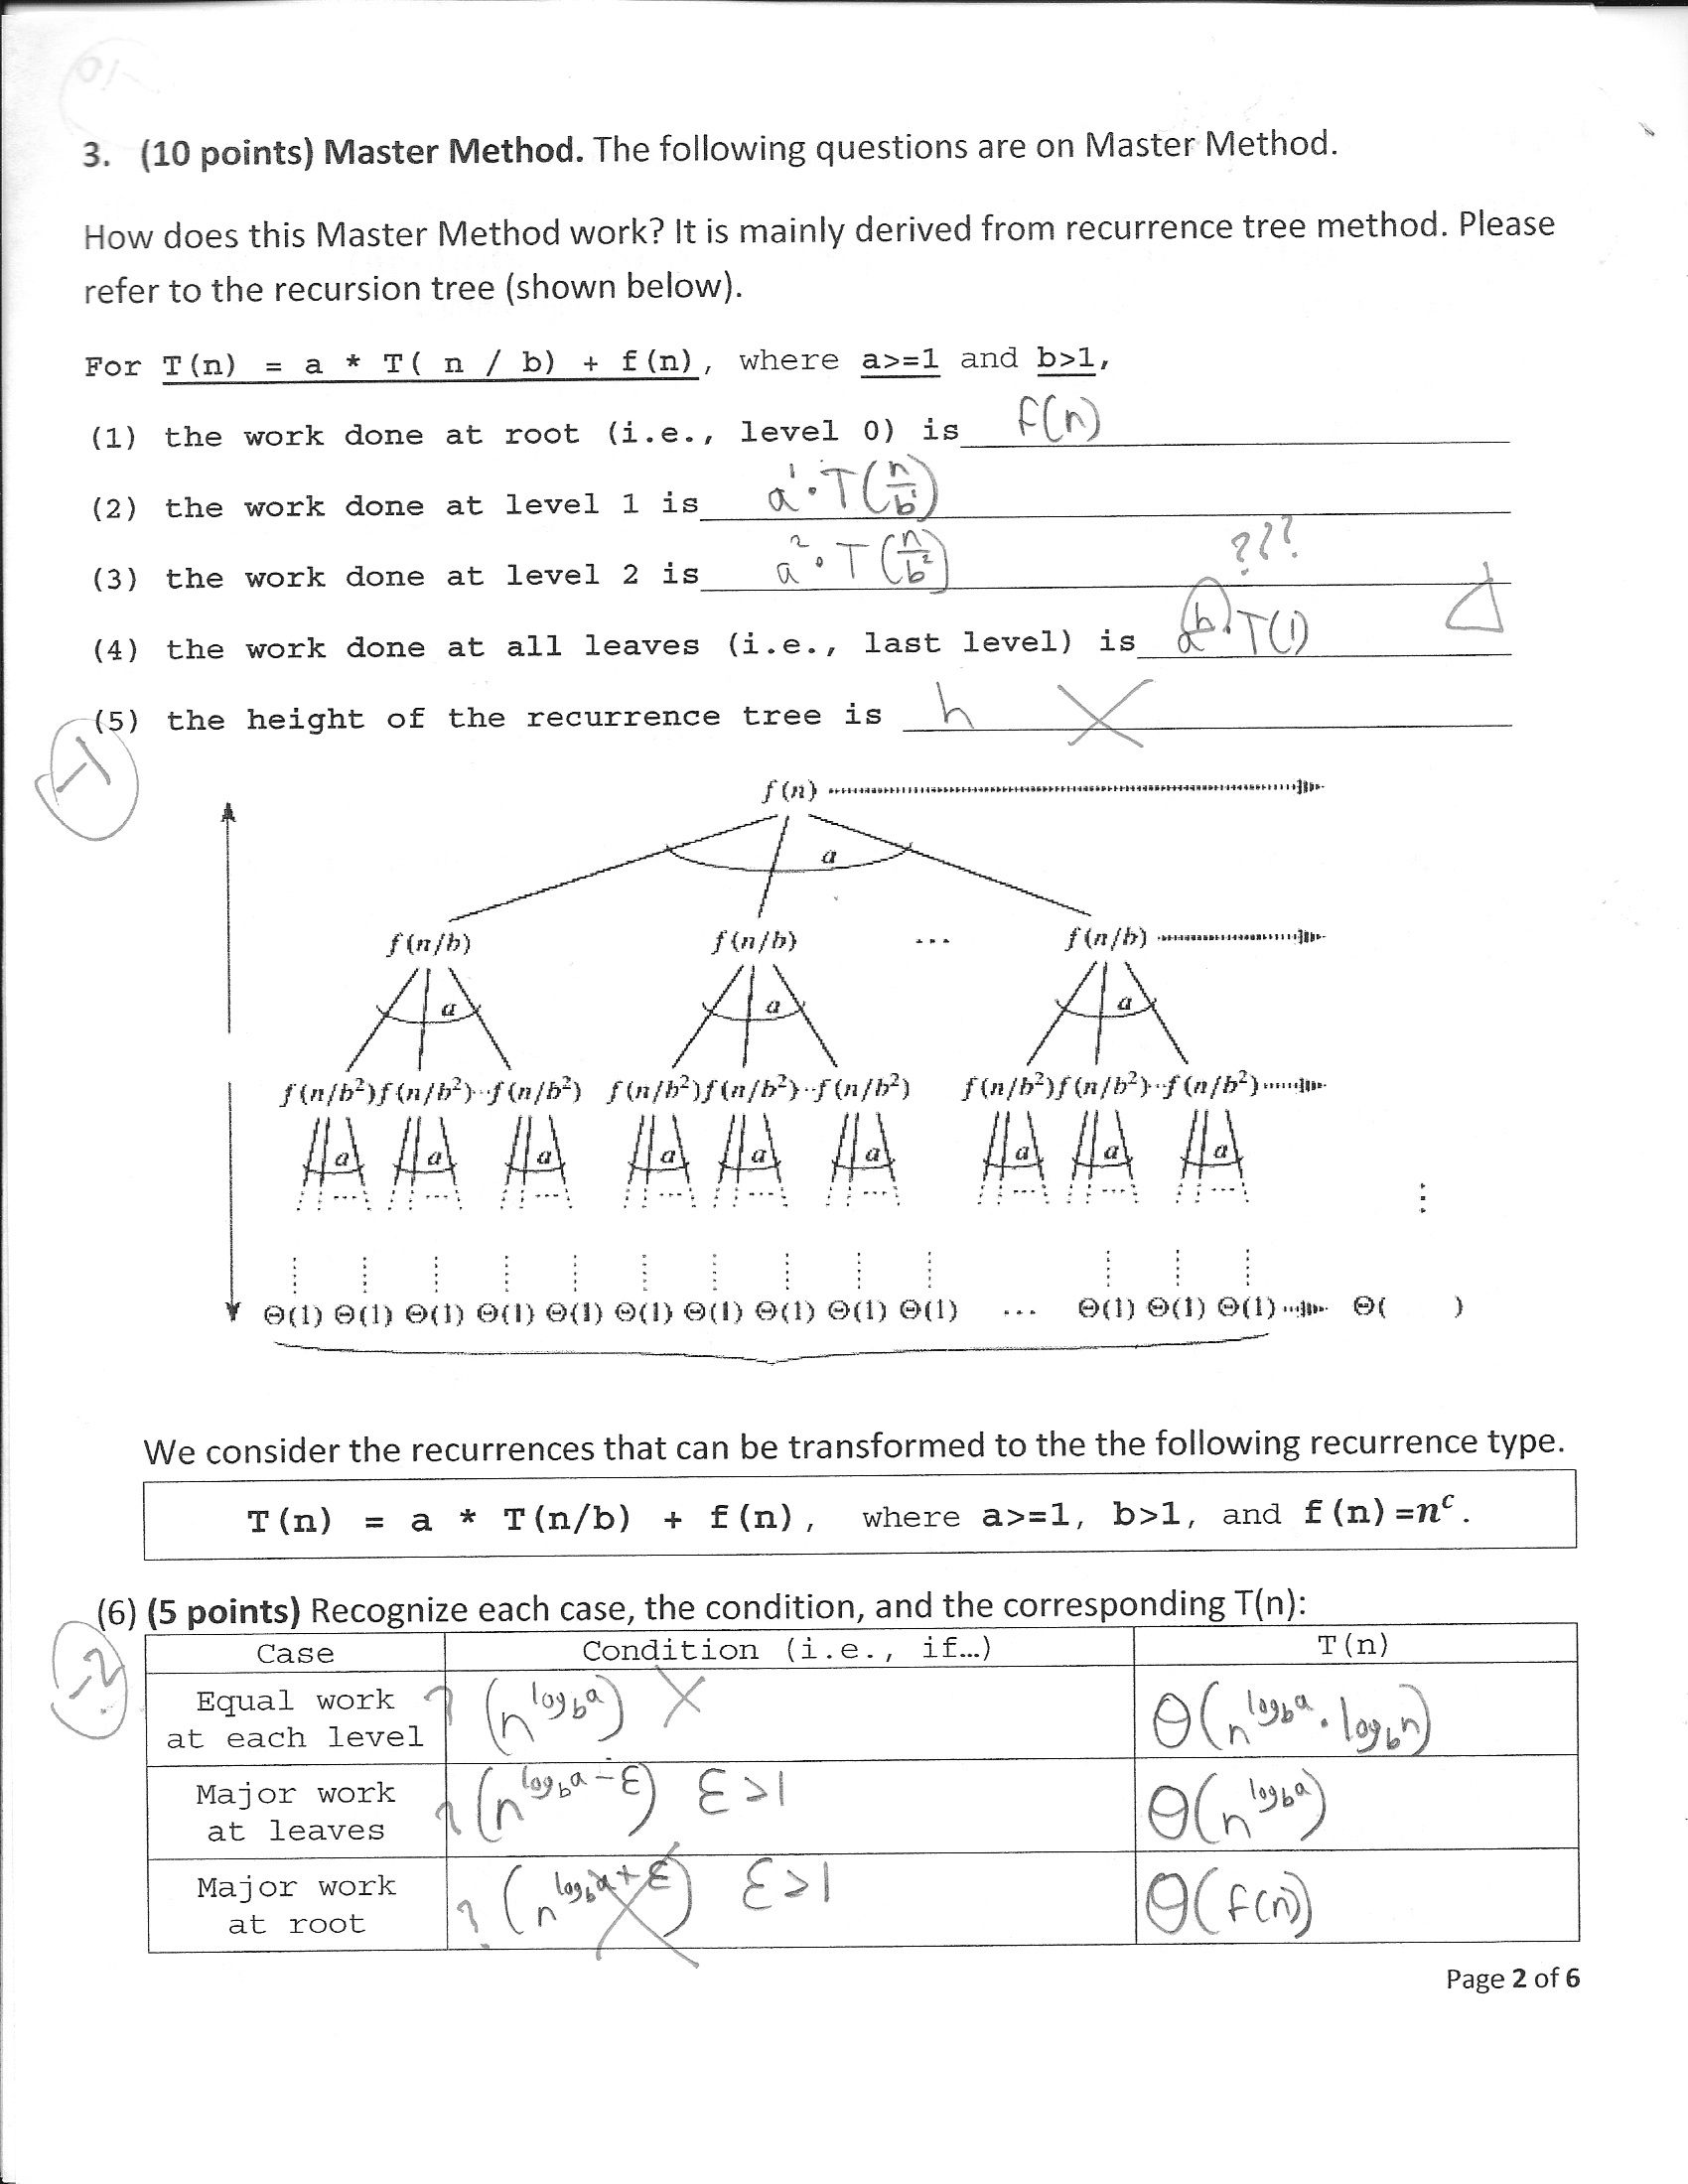 3. (10 points) Master Method. The following questions are on Master Method.
How does this Master Method work? It is mainly derived from recurrence tree method. Please
refer to the recursion tree (shown below).
For T(n) = a * T( n / b) + f(n), where a>=1 and b>1,
(1) the work done at root (i.e., level 0) is f(n)
(2) the work done at level 1 is a¹·T(n/b¹)
(3) the work done at level 2 is a²·T(n/b²)
???
(4) the work done at all leaves (i.e., last level) is aʰ·T(1)
(5) the height of the recurrence tree is h
-1
f(n)
a
f(n/b) f(n/b) ... f(n/b)
a a a
f(n/b²) f(n/b²) ·· f(n/b²) f(n/b²) f(n/b²) ·· f(n/b²) f(n/b²) f(n/b²) ·· f(n/b²)
a a a a a a a a a
Θ(1) Θ(1) Θ(1) Θ(1) Θ(1) Θ(1) Θ(1) Θ(1) Θ(1) Θ(1) ... Θ(1) Θ(1) Θ(1) Θ( )
We consider the recurrences that can be transformed to the the following recurrence type.
T(n) = a * T(n/b) + f(n), where a>=1, b>1, and f(n)=nᶜ.
(6) (5 points) Recognize each case, the condition, and the corresponding T(n):
-2
Case Condition (i.e., if…) T(n)
Equal work at each level ? (n^log_b a) Θ(n^log_b a · log_b n)
Major work at leaves ? (n^log_b a - ε) ε>1 Θ(n^log_b a)
Major work at root ? (n^log_b a + ε) ε>1 Θ(f(n))
Page 2 of 6